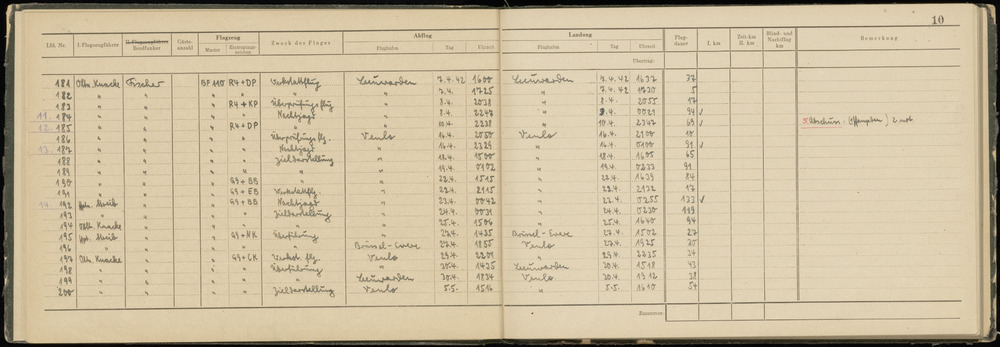 10
Lfd. Nr. I. Flugzeugführer II. Flugzeugführer Bordfunker Gäste-anzahl Flugzeug Muster Eintragungs-zeichen Zweck des Fluges Abflug Flughafen Tag Uhrzeit Landung Flughafen Tag Uhrzeit Flug-dauer I. km Zeit-km II. km Blind- und Nachtflug km Bemerkung
Übertrag:
181 Oltn. Knacke Fischer BF 110 R4+DP Werkstattflug Leeuwarden 7.4.42 1600 Leeuwarden 7.4.42 1637 37
182 " " " " " " 7.4. 1725 " 7.4.42 1730 5
183 " " " R4+KP Überprüfungsflug " 8.4. 2038 " 8.4. 2055 17
11. 184 " " " " Nachtjagd " 8.4. 2247 " 9.4. 0021 94 ✓
12. 185 " " " R4+DP " " 10.4. 2238 " 10.4. 2347 69 ✓ 5. Abschuss: 2 mot
186 " " " " Überprüfungsflg. Venlo 16.4. 2050 Venlo 16.4. 2100 10
13. 187 " " " " Nachtjagd " 16.4. 2329 " 17.4. 0100 91 ✓
188 " " " " Zieldarstellung " 18.4. 1500 " 18.4. 1605 65
189 " " " " " " 19.4. 0102 " 19.4. 0233 91
190 " " " G9+BB " " 22.4. 1515 " 22.4. 1639 84
191 " " " G9+EB Werkstattflg. " 22.4. 2115 " 22.4. 2132 17
14. 192 " " G9+BB Nachtjagd " 23.4. 0042 " 23.4. 0255 133 ✓
193 " " " " Zieldarstellung " 24.4. 0031 " 24.4. 0230 119
194 Oltn. Knacke " " " " " 25.4. 1506 " 25.4. 1640 94
195 " " G9+NK Überführung " 27.4. 1435 Brüssel-Evere 27.4. 1502 27
196 " " " " " Brüssel-Evere 27.4. 1855 Venlo 27.4. 1925 30
197 Oltn. Knacke " " G9+CK Werkst. flg. Venlo 29.4. 2201 " 29.4. 2235 34
198 " " " " Überführung " 30.4. 1435 Leeuwarden 30.4. 1518 43
199 " " " " " Leeuwarden 30.4. 1834 Venlo 30.4. 1912 38
200 " " " " Zieldarstellung Venlo 5.5. 1516 " 5.5. 1610 54
Zusammen: